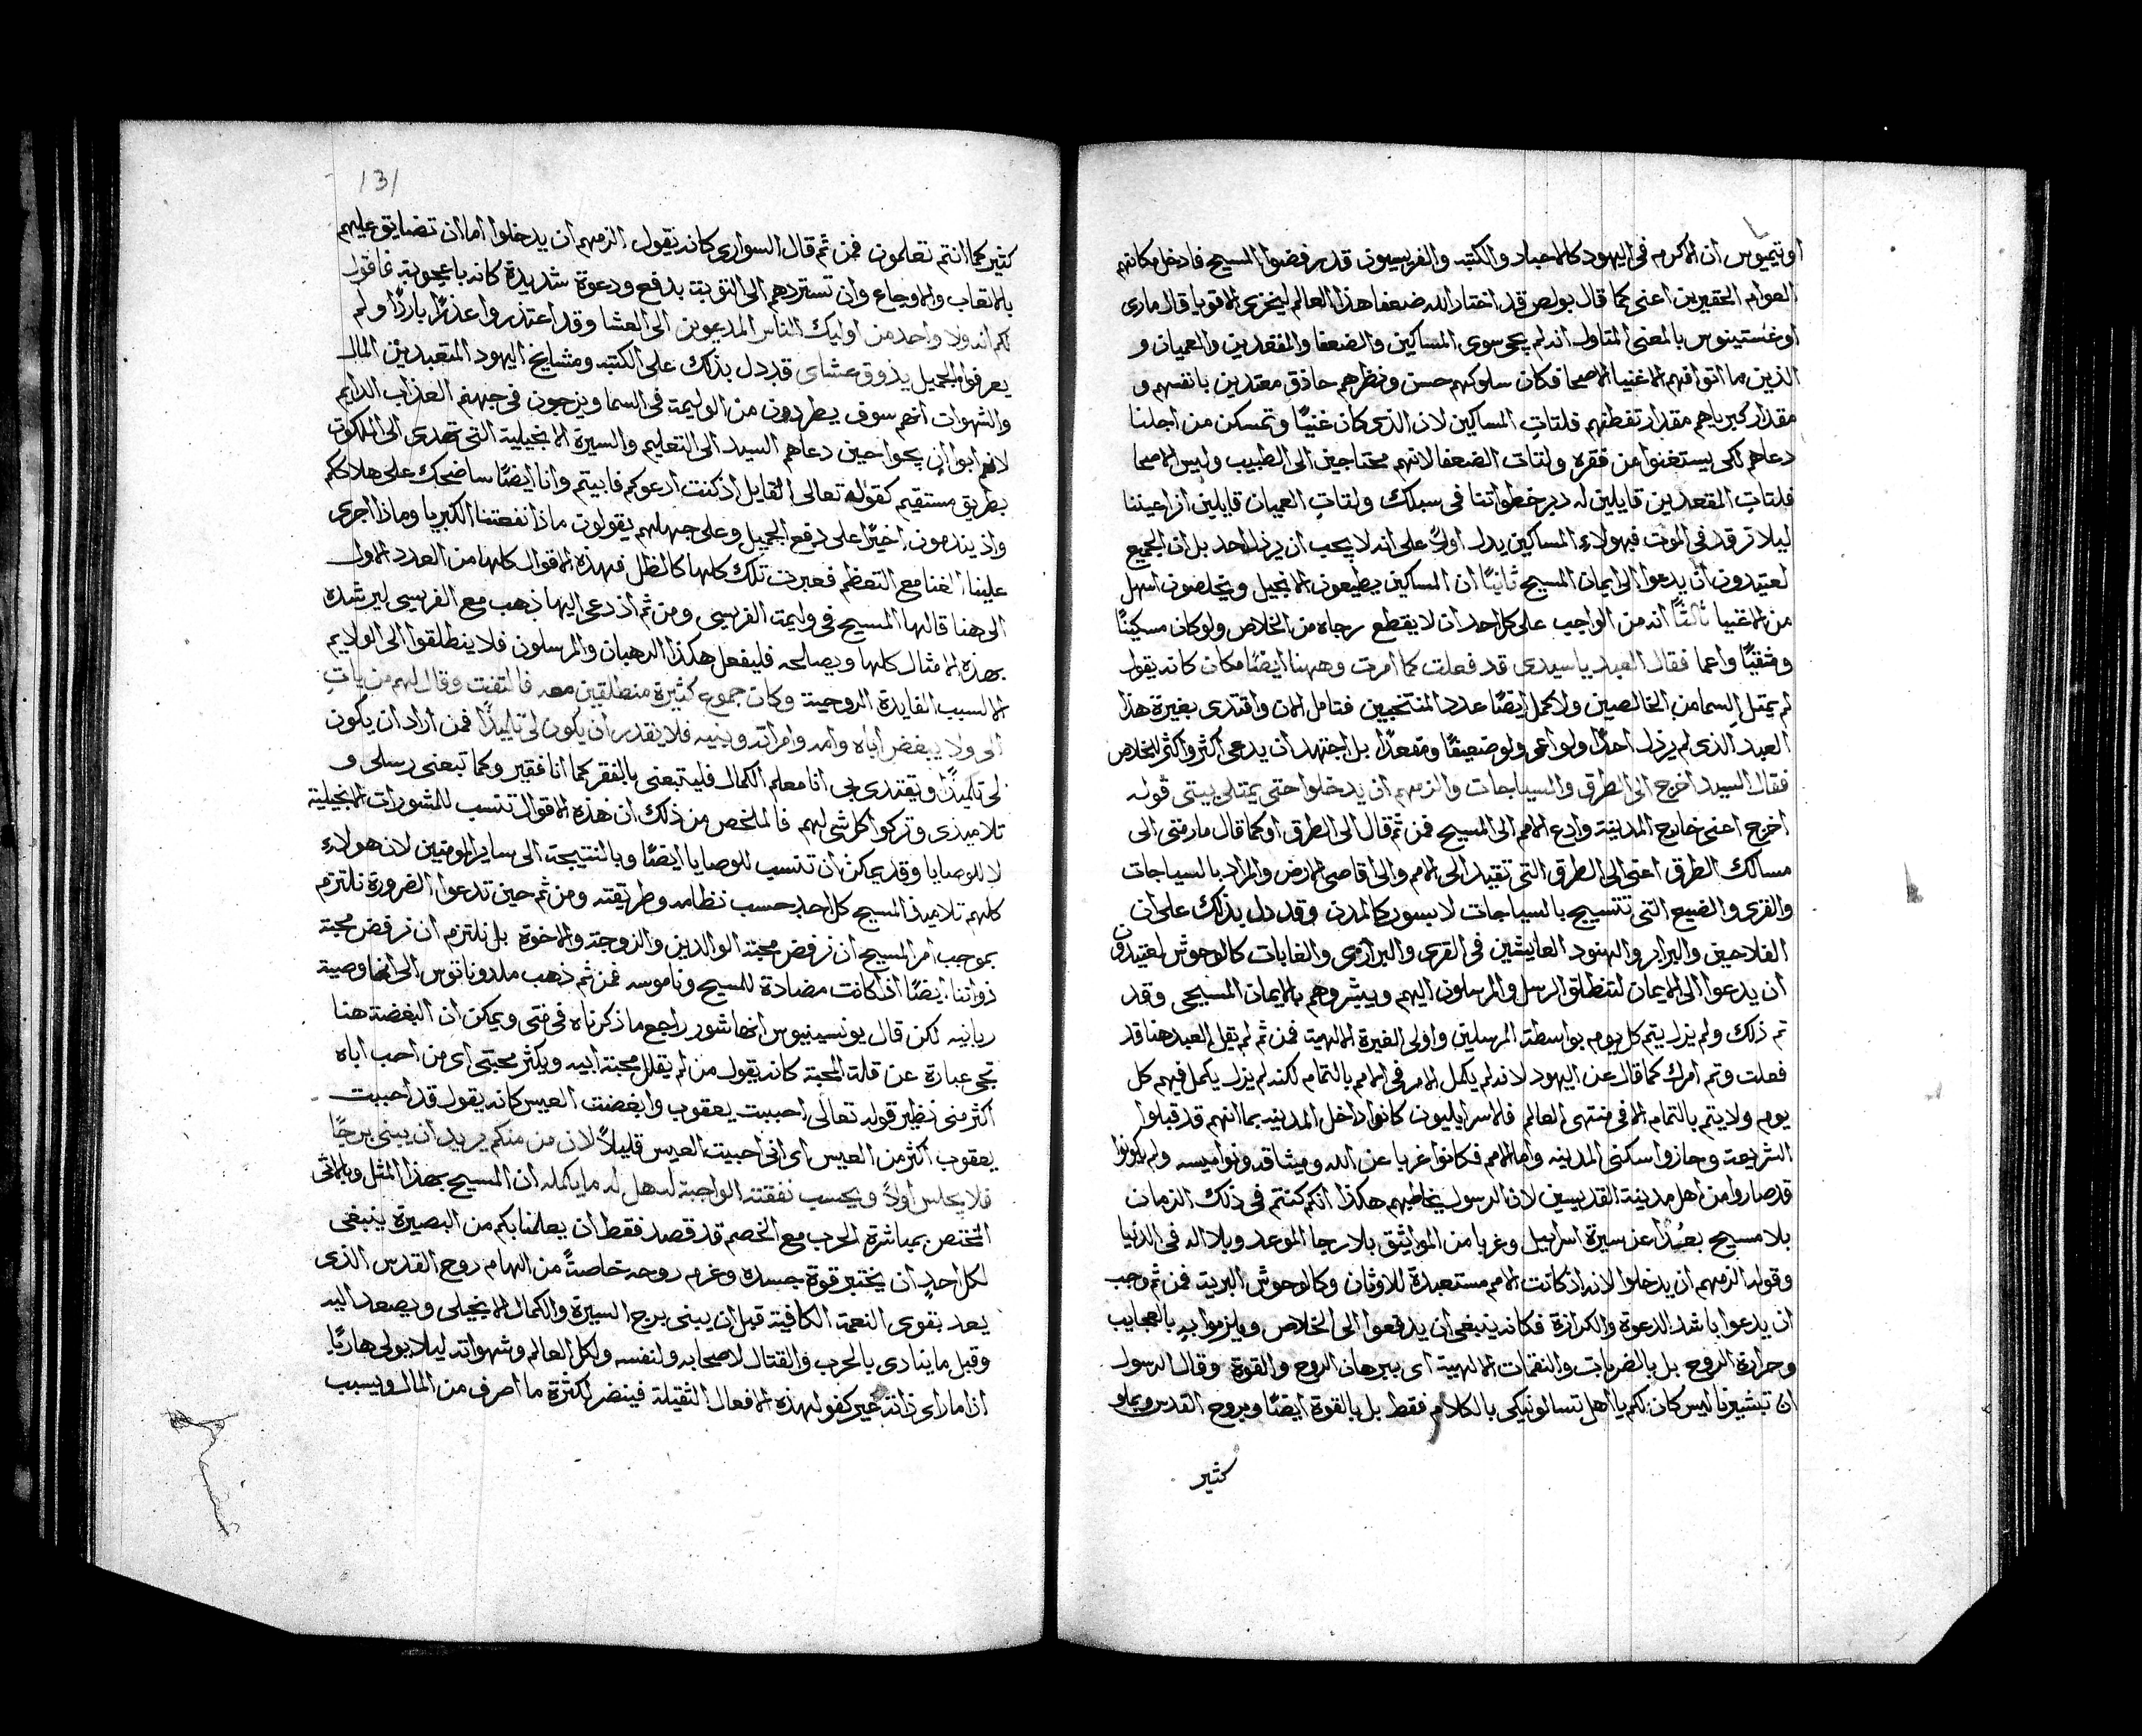 اوتيميوس ان الاكرم في اليهود كالاحبار والكتبه والفريسيون قد رفضوا المسيح فادخل مكانهم
العوام الحقيرين اعني كما قال بولص قد اختار الله ضعفا هذا العالم ليخزي الاقويا قال ماري
اوغستينوس بالمعني المتاول انه لم يجي سوي المساكين والضعفا والمقعدين والعميان و
الذين ما اتوا فهم الاغنيا الاصحا فكان سلوكهم حسن ونظرهم حاذق معتدين بانفسهم و
مقدار كبرياهم مقدار تغطفهم فلتات المساكين لان الذي كان غنيًا وتمسكن من اجلنا
دعاهم لكي يستغنوا من فقره ولتات الضعفا لانهم محتاجين الي الطبيب وليس الاصحا
فلتات المقعدين قايلين له دبر خطواتنا في سبلك ولتات العميان قايلين انر اعيننا
ليلا ترقد في الموت فبهولاء المساكين يدل اولاً علي انه لا يجب ان يرذل احد بل ان الجميع
لعتيدون ان يدعوا الي ايمان المسيح ثانيًا ان المساكين يطيعون الانجيل ويخلصون اسهل
من الاغنيا ثالثًا انه من الواجب علي كل احد ان لا يقطع رجاه من الخلاص ولو كان مسكينًا
وشقيًا واعما فقال العبد يا سيدي قد فعلت كما امرت وههنا ايضًا مكان كانه يقول
لم يمتل السما من الخالصين ولا كمل ايضًا عدد المنتخبين فتامل الان واقتدي بغيرة هذا
العبد الذي لم يرذل احدًا ولو اعمي ولو ضعيفًا ومقعدًا بل اجتهد ان يدعي اكثر واكثر للخلاص
فقال السيد اخرج الي الطرق والسياجات والزمهم ان يدخلوا حتي يمتلي بيتي قوله
اخرج اعني خارج المدينة وادع الامم الي المسيح فمن ثم قال الي الطرق او كما قال مار متي الي
مسالك الطرق اعني الي الطرق التي تقيد الي الامم والي اقاصي الارض والمراد بالسياجات
والقري والضيع التي تتسيج بالسياجات لا بسور كالمدن وقد دل بذلك علي ان
الفلاحين والبرابر والهنود العايشين في القري والبراري والغابات كالوحوش لعتيدون
ان يدعوا الي الايمان لتنطلق الرسل والمرسلون اليهم ويبشروهم بالايمان المسيحي وقد
تم ذلك ولم يزل يتم كل يوم بواسطة المرسلين واولي الغيرة الالهية فمن ثم لم يقل العبد هنا قد
فعلت وتم امرك كما قال عن اليهود لانه لم يكمل الامر في الامم بالتمام لكنه لم يزل يكمل فيهم كل
يوم ولا يتم بالتمام الا في منتهي العالم فالاسرايليون كانوا داخل المدينه بما انهم قد قبلوا
الشريعة وحازوا سكني المدينه واما الامم فكانوا غربا عن الله وميثاقه ونواميسه ولم يكونوا
قد صاروا من اهل مدينة القديسين لان الرسول يخاطبهم هكذا انكم كنتم في ذلك الزمان
بلا مسيح بعُدًا عن سيرة اسراييل وغربا من المواثيق بلا رجا الموعد وبلا اله في الدنيا
وقوله الزمهم ان يدخلوا لانه اذ كانت الامم مستعبدة للاوثان وكالوحوش البرية فمن ثم وجب
ان يدعوا باشد الدعوة والكرازة فكانه ينبغي ان يدفعوا الي الخلاص ويلزموا به بالعجايب
وحرارة الروح بل بالضربات والنقمات الالهية اي ببرهان الروح والقوة وقال الرسول
ان تبشيرنا ليس كان لكم يا اهل تسالونيكي بالكلام فقط بل بالقوة ايضًا وبروح القدس وبملو
كثير
131
كثير كما انتم تعلمون فمن ثم قال السواري كانه يقول الزمهم ان يدخلوا اما ان تضايق عليهم
بالاتعاب والاوجاع وان تستردهم الي التوبة بدفع ودعوة شديدة كانه باعجوبة فاقول
لكم انه ولا واحد من اوليك الناس المدعوين الي العشا وقد اعتذروا عذرًا باردًا ولم
يعرفوا الجميل يذوق عشاي قد دل بذلك علي الكتبه ومشايخ اليهود المتعبدين المال
والشهوات انهم سوف يطردون من الوليمة في السما ويزجون في جهنم العذاب الدايم
لانهم ابوا ان يجوا حين دعاهم السيد الي التعليم والسيرة الانجيلية التي تهدي الي الملكوت
بطريق مستقيم كقوله تعالي القايل اذ كنت ادعوكم فابيتم وانا ايضًا ساضحك علي هلاككم
واذ يندمون اخيرًا علي دفع الجميل وعلي جهلهم يقولون ماذا نفعتنا الكبريا وماذا اجري
علينا الغنا مع التعظم فعبرت تلك كلها كالظل فهذه الاقوال كلها من العدد الاول
الي هنا قالها المسيح في وليمة الفريسي ومن ثم اذ دعي اليها ذهب مع الفريسي ليرشده
بهذه الامثال كلها ويصالحه فليفعل هكذا الرهبان والمرسلون فلا ينطلقوا الي الولايم
الا لسبب الفايدة الروحية وكان جموع كثيرة منطلقين معه فالتفت وقال لهم من يات
الي ولا يبغض اباه وامه وامراته وبنيه فلا يقدر ان يكون لي تلميذًا فمن اراد ان يكون
لي تلميذًا ويقتدي بي انا معلم الكمال فليتبعني بالفقر كما انا فقير وكما تبعني رسلي و
تلاميذي وتركوا كل شي لهم فالملخص من ذلك ان هذه الاقوال تنسب للمشورات الانجيلية
لا للوصايا وقد يمكن ان تنسب للوصايا ايضًا وبالنتيجة الي ساير المومنين لان هولاء
كلهم تلاميذ المسيح كل احد حسب نظامه وطريقته ومن ثم حين تدعوا الضرورة نلتزم
بموجب امر المسيح ان نرفض محبة الوالدين والزوجة والاخوة بل نلتزم ان نرفض محبة
ذواتنا ايضًا اذا كانت مضادة للمسيح وناموسه فمن ثم ذهب ملدوناتوس الي انها وصية
ربانيه لكن قال يونسينيوس انها شور راجع ما ذكرناه في متي ويمكن ان البغضة هنا
تجي عبارة عن قلة المحبة كانه يقول من لم يقلل محبة ابيه ويكثر محبتي اي من احب اباه
اكثر مني نظير قوله تعالي احببت يعقوب وابغضت العيس كانه يقول قد احببت
يعقوب اكثر من العيس اي اني احببت العيس قليلاً لان من منكم يريد ان يبني برجًا
فلا يجلس اولاً ويحسب نفقته الواجبة له هل له ما يكمله ان المسيح بهذا المثل وبالاتي
المختص بمباشرة الحرب مع الخصم قد قصد فقط ان يعلمنا بكم من البصيرة ينبغي
لكل احدٍ ان يختبر قوة جسده وغرم روحه خاصةً من الهام روح القدس الذي
يعد بقوي النعمة الكافية قبل ان يبني برج السيرة والكمال الانجيلي ويصعد اليه
وقبل ما ينادي بالحرب والقتال لاصحابه ولنفسه ولكل العالم وشهواته ليلا يولي هاربًا
اذا ما راي ذاته غير كفو لهذه الافعال الثقيلة فينضر لكثرة ما اصرف من المال وبسبب